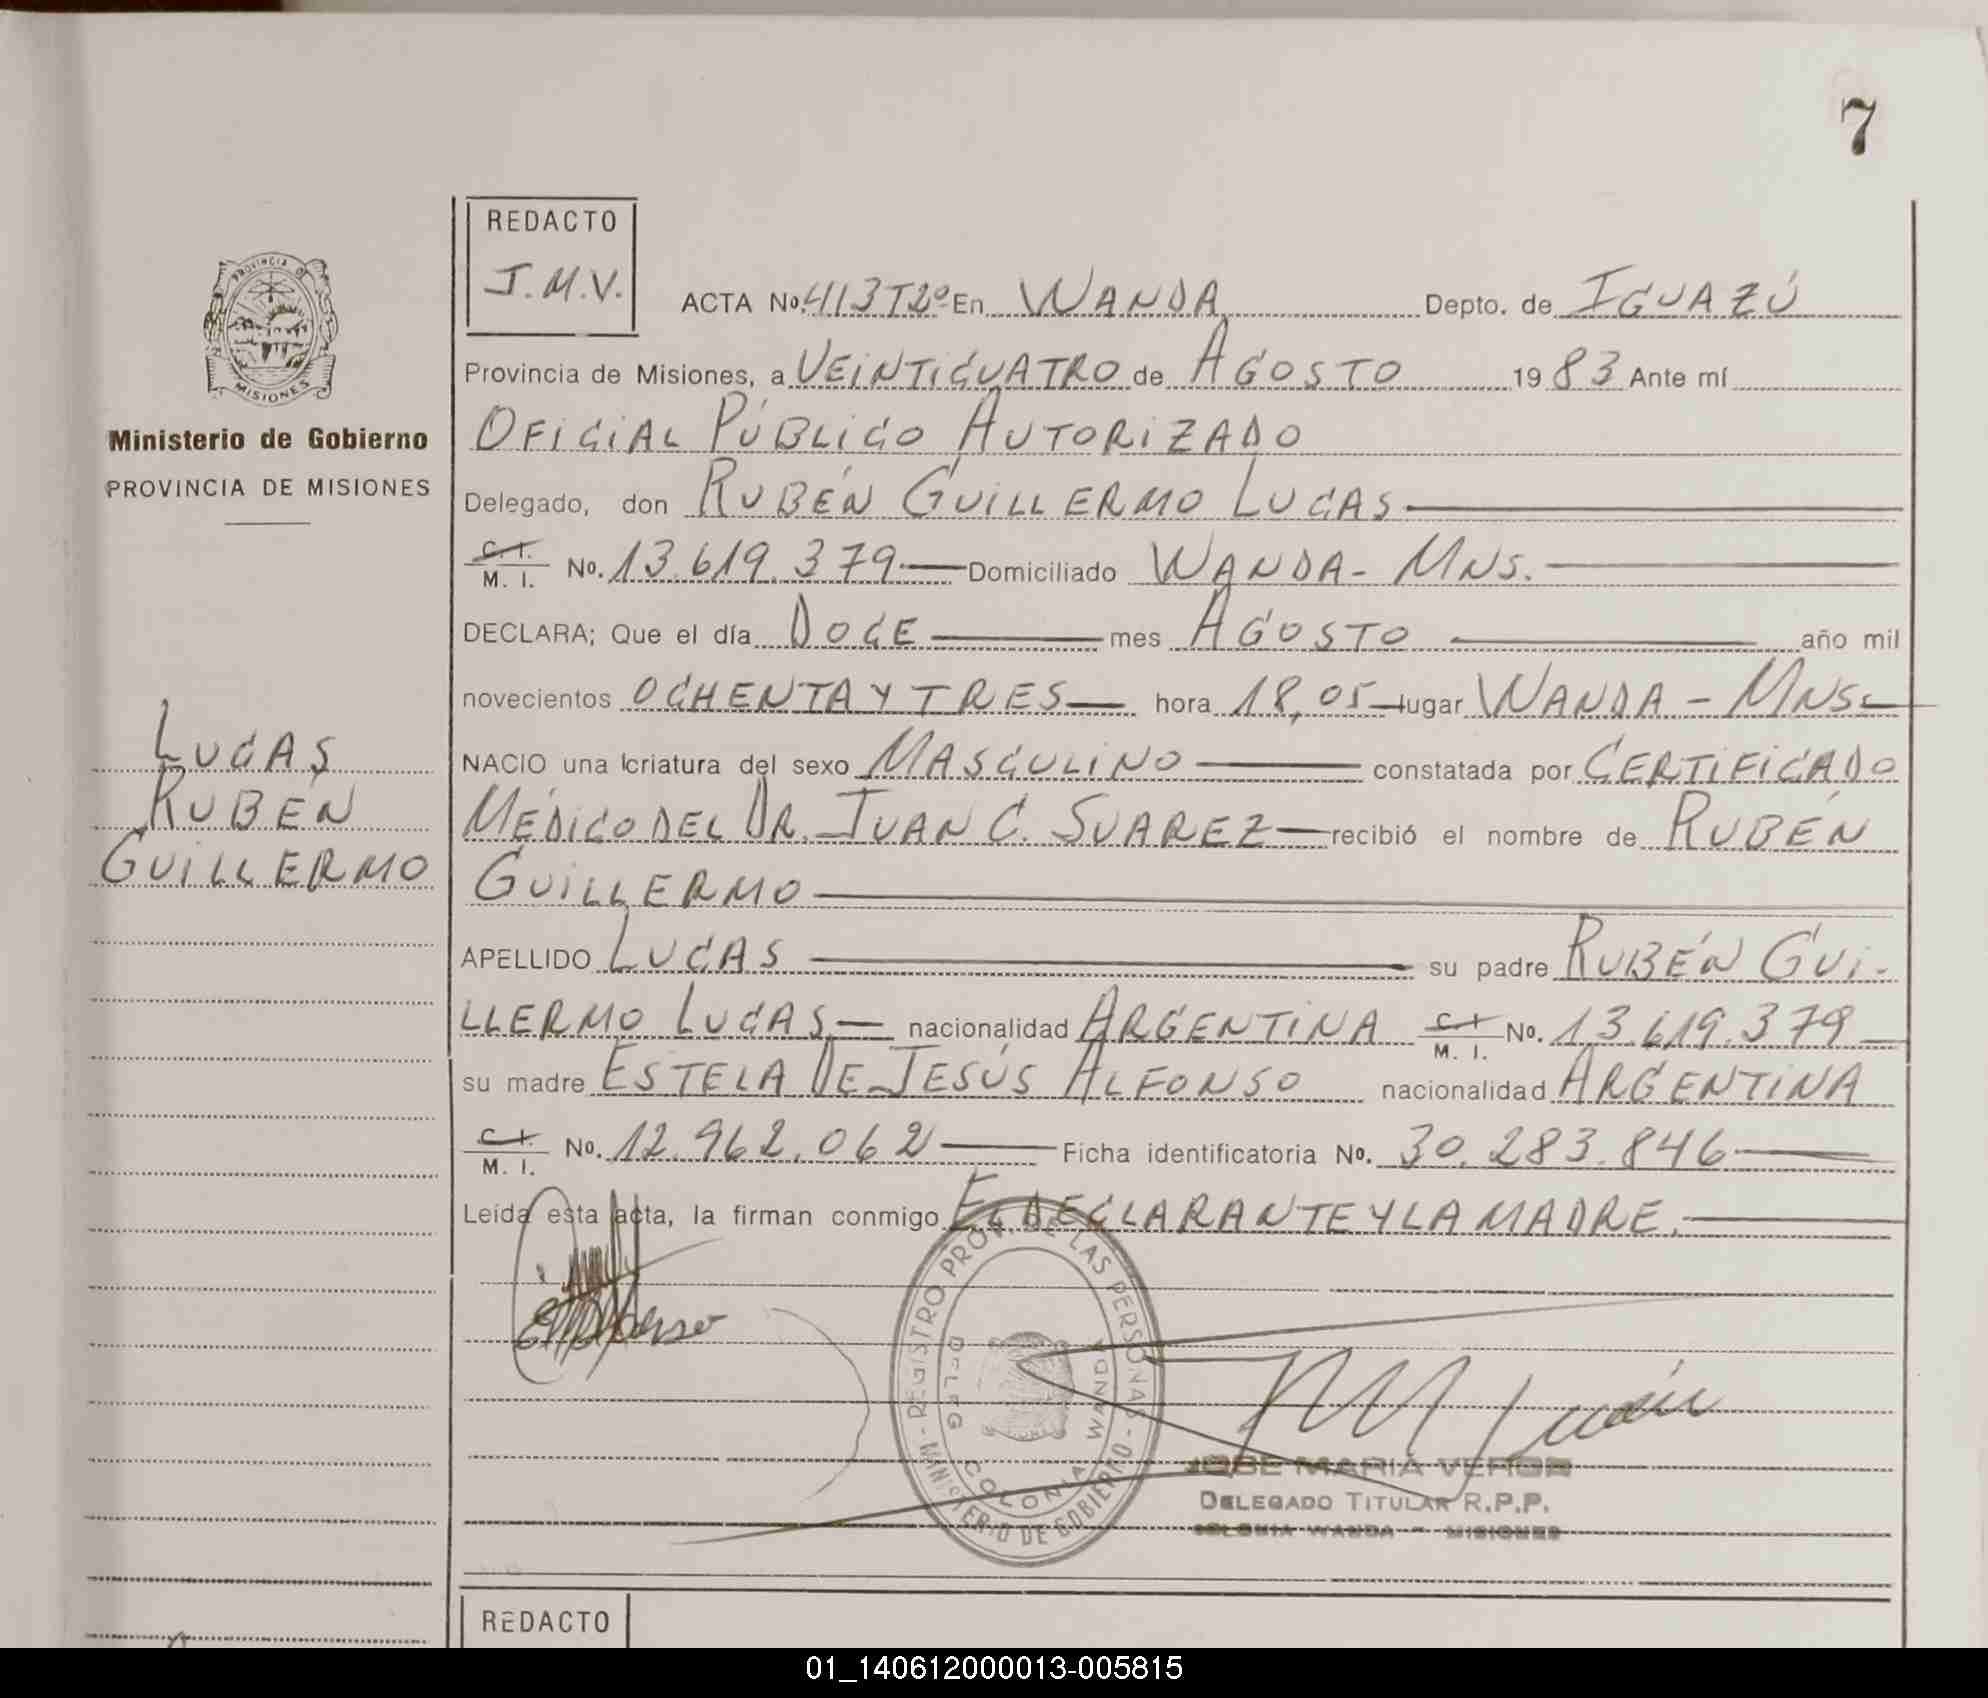 7
REDACTO
J.M.V.
ACTA No. 413 T2º En WANDA Depto. de IGUAZÚ
Provincia de Misiones, a VEINTICUATRO de AGOSTO 1983 Ante mí
OFICIAL PÚBLICO AUTORIZADO
Delegado, don RUBÉN GUILLERMO LUCAS
C. I. M. I. No. 13.619.379 Domiciliado WANDA - MNS.
DECLARA; Que el día DOCE mes AGOSTO año mil
novecientos OCHENTA Y TRES hora 18,05 lugar WANDA - MNS.
NACIO una criatura del sexo MASCULINO constatada por CERTIFICADO
MÉDICO DEL DR. JUAN C. SUAREZ recibió el nombre de RUBÉN
GUILLERMO
APELLIDO LUCAS su padre RUBÉN GUI-
LLERMO LUCAS nacionalidad ARGENTINA C. I. M. I. No. 13.619.379
su madre ESTELA DE JESÚS ALFONSO nacionalidad ARGENTINA
C. I. M. I. No. 12.962.062 Ficha identificatoria No. 30.283.846
Leída esta acta, la firman conmigo EL DECLARANTE Y LA MADRE.
PROVINCIA DE
MISIONES
Ministerio de Gobierno
PROVINCIA DE MISIONES
LUCAS
RUBÉN
GUILLERMO
REGISTRO PROV. DE LAS PERSONAS - MINISTERIO DE GOBIERNO -
DELEG COLONIA WANDA
JOSE MARIA VERON
DELEGADO TITULAR R.P.P.
COLONIA WANDA - MISIONES
REDACTO
01_140612000013-005815